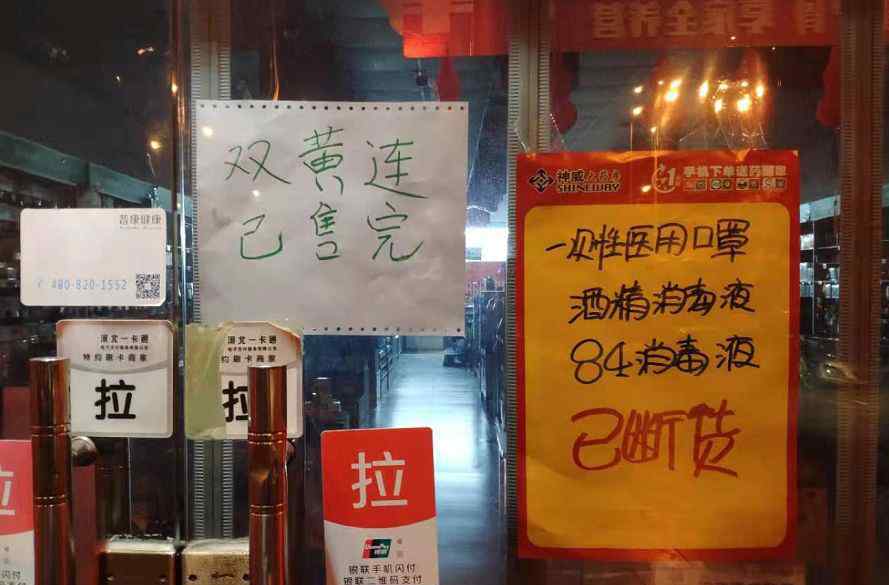 双黄连
已售完
神威大药房
SHINEWAY
手机下单送药
一次性医用口罩
酒精消毒液
84消毒液
已断货
普康健康
400-820-1552
一卡通
特约刷卡商家
拉
一卡通
刷卡商家
拉
拉
拉
银联手机闪付
银联二维码支付